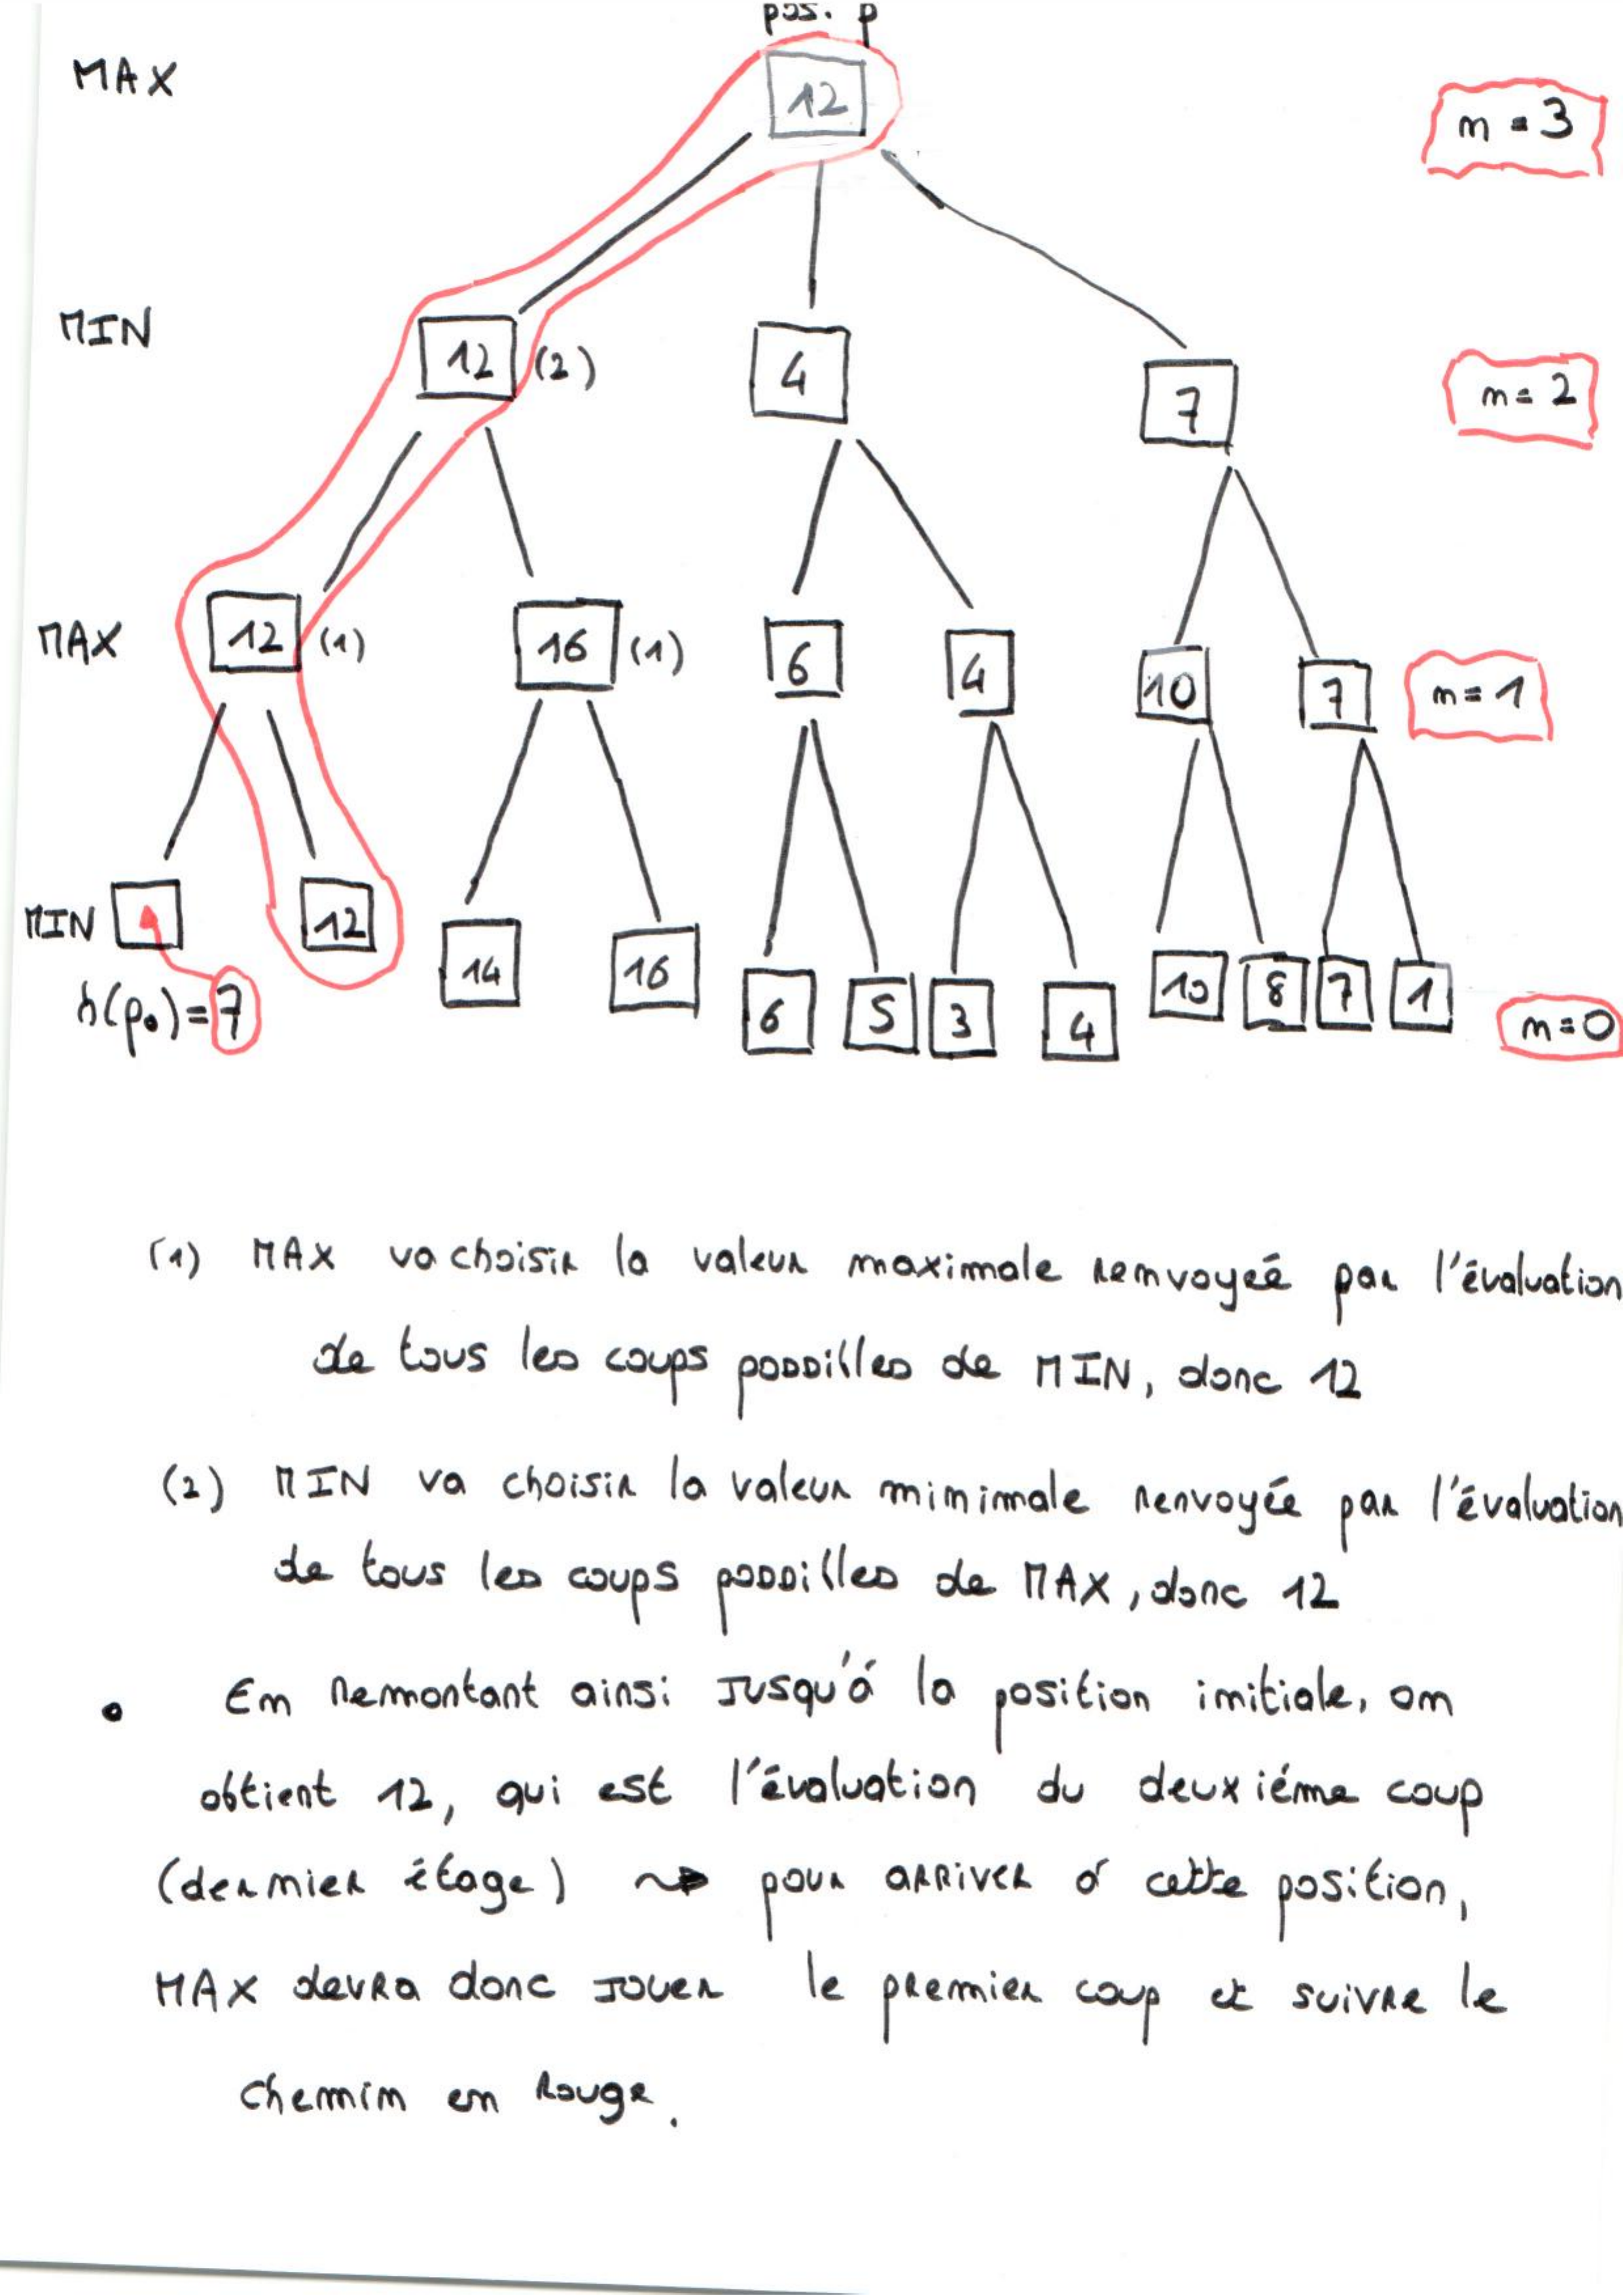 pos. p
MAX 12 n = 3
MIN 12 (2) 4 7 n = 2
MAX 12 (1) 16 (1) 6 4 10 7 n = 1
MIN 12 14 16 6 5 3 4 10 8 7 1
h(p₀) = 7 n = 0
(1) MAX va choisir la valeur maximale renvoyée par l'évaluation
de tous les coups possibles de MIN, donc 12
(2) MIN va choisir la valeur minimale renvoyée par l'évaluation
de tous les coups possibles de MAX, donc 12
• En remontant ainsi jusqu'à la position initiale, on
obtient 12, qui est l'évaluation du deuxième coup
(dernier étage) ⇝ pour arriver à cette position,
MAX devra donc jouer le premier coup et suivre le
chemin en rouge.